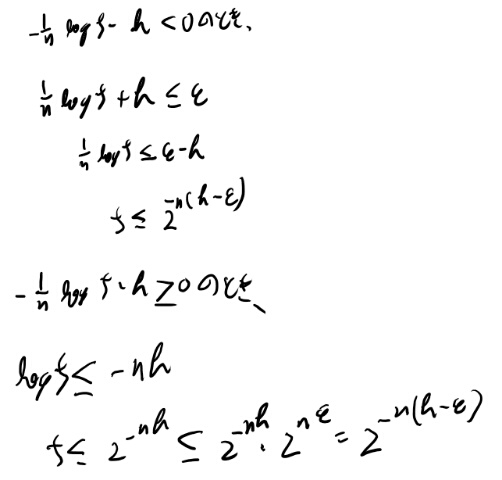 -1/n log f - h < 0 のとき、
1/n log f + h ≤ ε
1/n log f ≤ ε-h
f ≤ 2^{-n(h-ε)}
-1/n log f - h ≥ 0 のとき、
log f ≤ -nh
f ≤ 2^{-nh} ≤ 2^{-nh} · 2^{nε} = 2^{-n(h-ε)}